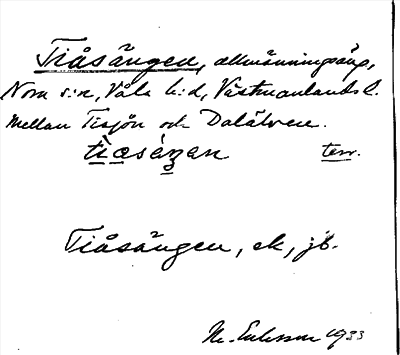 Tiåsängen, allmänningsäng,
Nora s:n, Våla h:d, Västmanlands l.
mellan Tisjön och Dalälven.
terr.
Tiåsängen, ek, jb.
M. Eriksson 1933